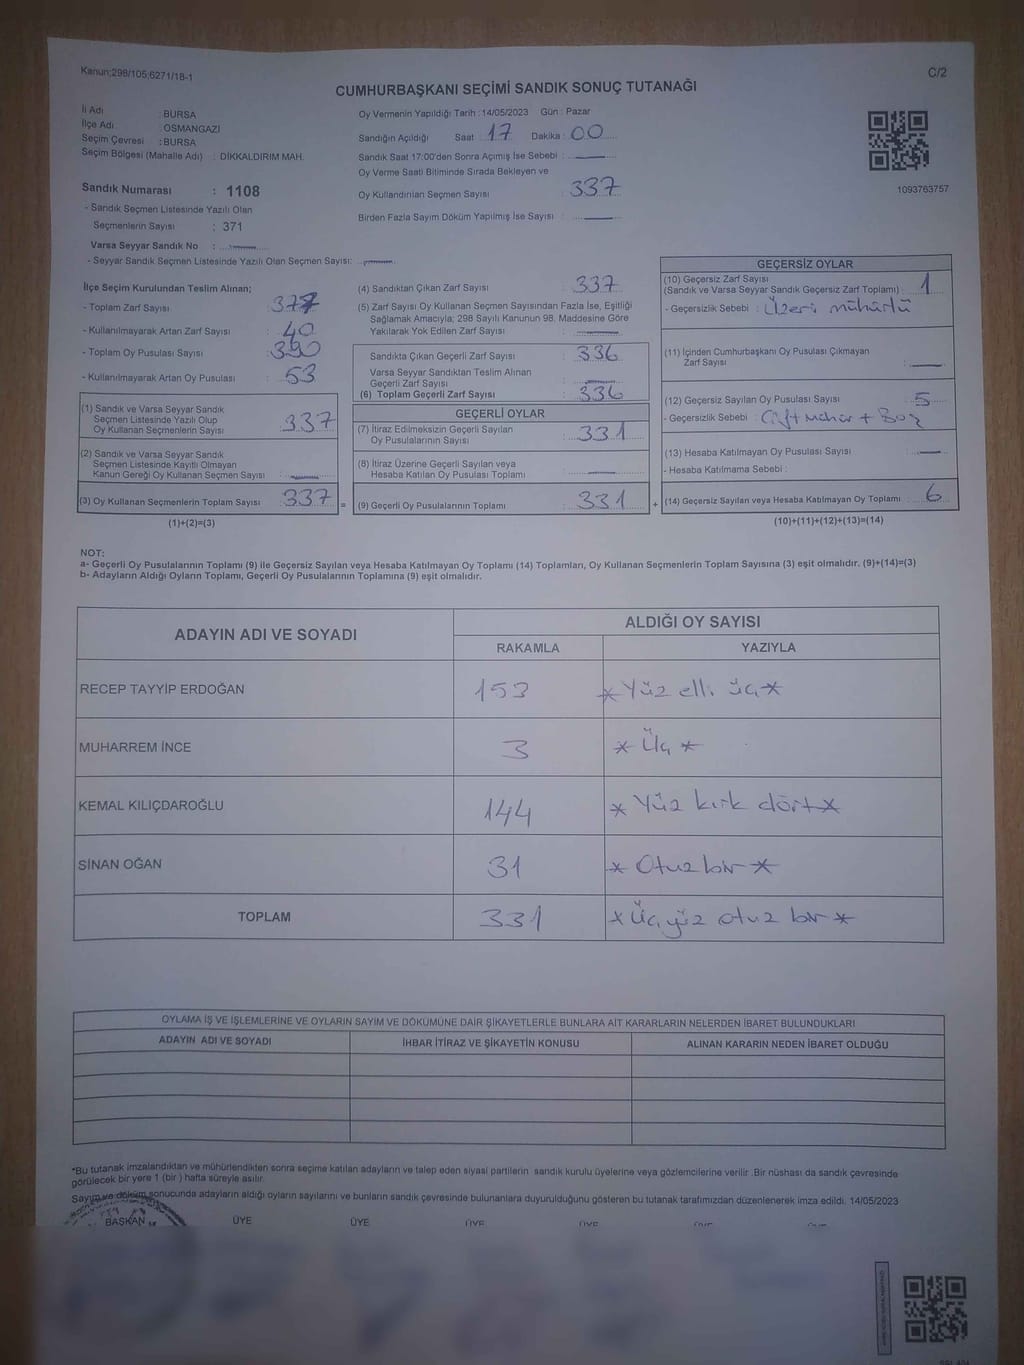 Kanun:298/105;6271/18-1
C/2
CUMHURBAŞKANI SEÇİMİ SANDIK SONUÇ TUTANAĞI
İl Adı : BURSA
İlçe Adı : OSMANGAZI
Seçim Çevresi : BURSA
Seçim Bölgesi (Mahalle Adı) : DİKKALDIRIM MAH.
Sandık Numarası : 1108
- Sandık Seçmen Listesinde Yazılı Olan
Seçmenlerin Sayısı : 371
Varsa Seyyar Sandık No :
- Seyyar Sandık Seçmen Listesinde Yazılı Olan Seçmen Sayısı:
Oy Vermenin Yapıldığı Tarih : 14/05/2023 Gün : Pazar
Sandığın Açıldığı Saat : 17 Dakika : 00
Sandık Saat 17:00'den Sonra Açımış İse Sebebi :
Oy Verme Saati Bitiminde Sırada Bekleyen ve
Oy Kullandırılan Seçmen Sayısı : 337
Birden Fazla Sayım Döküm Yapılmış İse Sayısı :
1093763757
İlçe Seçim Kurulundan Teslim Alınan;
- Toplam Zarf Sayısı : 377
- Kullanılmayarak Artan Zarf Sayısı : 40
- Toplam Oy Pusulası Sayısı : 390
- Kullanılmayarak Artan Oy Pusulası : 53
(1) Sandık ve Varsa Seyyar Sandık
Seçmen Listesinde Yazılı Olup
Oy Kullanan Seçmenlerin Sayısı : 337
(2) Sandık ve Varsa Seyyar Sandık
Seçmen Listesinde Kayıtlı Olmayan
Kanun Gereği Oy Kullanan Seçmen Sayısı :
(3) Oy Kullanan Seçmenlerin Toplam Sayısı : 337 =
(1)+(2)=(3)
(4) Sandıktan Çıkan Zarf Sayısı : 337
(5) Zarf Sayısı Oy Kullanan Seçmen Sayısından Fazla İse, Eşitliği
Sağlamak Amacıyla; 298 Sayılı Kanunun 98. Maddesine Göre
Yakılarak Yok Edilen Zarf Sayısı :
Sandıkta Çıkan Geçerli Zarf Sayısı : 336
Varsa Seyyar Sandıktan Teslim Alınan
Geçerli Zarf Sayısı :
(6) Toplam Geçerli Zarf Sayısı : 336
GEÇERLİ OYLAR
(7) İtiraz Edilmeksizin Geçerli Sayılan
Oy Pusulalarının Sayısı : 331
(8) İtiraz Üzerine Geçerli Sayılan veya
Hesaba Katılan Oy Pusulası Toplamı :
(9) Geçerli Oy Pusulalarının Toplamı : 331 +
GEÇERSİZ OYLAR
(10) Geçersiz Zarf Sayısı
(Sandık ve Varsa Seyyar Sandık Geçersiz Zarf Toplamı) : 1
- Geçersizlik Sebebi : Üzeri mühürlü
(11) İçinden Cumhurbaşkanı Oy Pusulası Çıkmayan
Zarf Sayısı :
(12) Geçersiz Sayılan Oy Pusulası Sayısı : 5
- Geçersizlik Sebebi : Çift mühür + Boş
(13) Hesaba Katılmayan Oy Pusulası Sayısı :
- Hesaba Katılmama Sebebi :
(14) Geçersiz Sayılan veya Hesaba Katılmayan Oy Toplamı : 6
(10)+(11)+(12)+(13)=(14)
NOT:
a- Geçerli Oy Pusulalarının Toplamı (9) ile Geçersiz Sayılan veya Hesaba Katılmayan Oy Toplamı (14) Toplamları, Oy Kullanan Seçmenlerin Toplam Sayısına (3) eşit olmalıdır. (9)+(14)=(3)
b- Adayların Aldığı Oyların Toplamı, Geçerli Oy Pusulalarının Toplamına (9) eşit olmalıdır.
ADAYIN ADI VE SOYADI
ALDIĞI OY SAYISI
RAKAMLA YAZIYLA
RECEP TAYYİP ERDOĞAN 153 *Yüz elli üç*
MUHARREM İNCE 3 * Üç *
KEMAL KILIÇDAROĞLU 144 * Yüz kırk dört*
SİNAN OĞAN 31 * Otuz bir *
TOPLAM 331 * Üç yüz otuz bir *
OYLAMA İŞ VE İŞLEMLERINE VE OYLARIN SAYIM VE DÖKÜMÜNE DAİR ŞİKAYETLERLE BUNLARA AİT KARARLARIN NELERDEN İBARET BULUNDUKLARI
ADAYIN ADI VE SOYADI İHBAR İTİRAZ VE ŞİKAYETİN KONUSU ALINAN KARARIN NEDEN İBARET OLDUĞU
*Bu tutanak imzalandıktan ve mühürlendikten sonra seçime katılan adayların ve talep eden siyasi partilerin sandık kurulu üyelerine veya gözlemcilerine verilir .Bir nüshası da sandık çevresinde
görülecek bir yere 1 (bir ) hafta süreyle asılır.
Sayım ve döküm sonucunda adayların aldığı oyların sayılarını ve bunların sandık çevresinde bulunanlara duyurulduğunu gösteren bu tutanak tarafımızdan düzenlenerek imza edildi. 14/05/2023
BAŞKAN ÜYE ÜYE ÜYE ÜYE ÜYE ÜYE